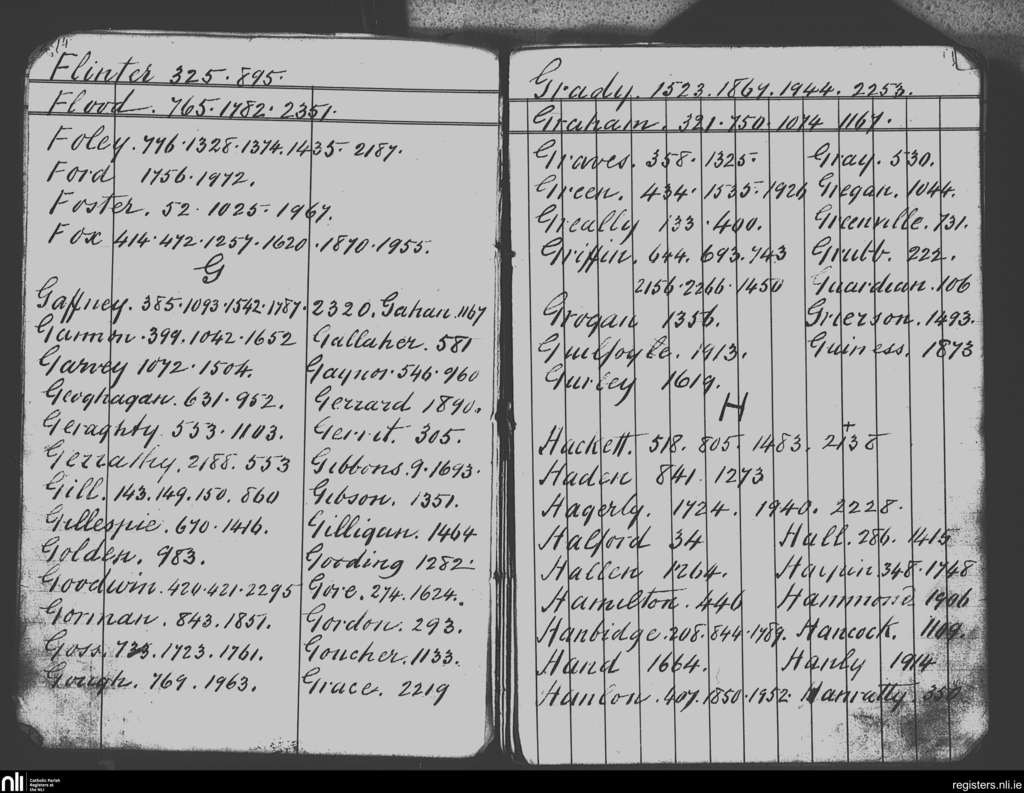 Flinter 325. 895.
Flood. 765. 1782. 2351.
Foley. 776. 1328. 1374. 1435. 2187.
Ford 1756. 1972.
Foster. 52. 1025. 1967.
Fox 414. 472. 1257. 1620. 1870. 1955.
G
Gaffney. 385. 1093. 1542. 1787. 2320. Gahan. 1167
Gannon. 399. 1042. 1652 Gallaher. 581
Garvey 1072. 1504. Gaynor. 546. 960
Geoghagan. 631. 952. Gerrard 1890.
Geraghty. 553. 1103. Gerrit. 305.
Gerrathy. 2188. 553 Gibbons. 9. 1693.
Gill. 143. 149. 150. 860 Gibson. 1351.
Gillespie. 670. 1416. Gilligan. 1464
Golden. 983. Gooding 1282.
Goodwin. 420. 421. 2295 Gore. 274. 1624.
Gorman. 843. 1851. Gordon. 293.
Goss. 733. 1723. 1761. Goucher. 1133.
Gough. 769. 1963. Grace. 2219
Grady. 1523. 1867. 1944. 2253.
Graham. 321. 750. 1074 1167.
Graves. 358. 1325. Gray. 530.
Green. 434. 1535. 1926 Gregan. 1044.
Greally 133. 400. Greenville. 731.
Griffin. 644. 693. 743 Grubb. 222.
2156. 2266. 1450 Guardian. 106
Grogan 1356. Grierson. 1493.
Guilfoyle. 1913. Guiness. 1873
Gurley 1619.
H
Hackett. 518. 805. 1483. 2138
Haden 841. 1273
Hagerly. 1724. 1940. 2228.
Halford 34 Hall. 286. 1415
Hallen 1264. Halpin. 348. 1748
Hamilton. 446 Hammond 1906
Hanbidge. 208. 844. 1789. Hancock. 1109.
Hand 1664. Hanly 1914
Hanlon. 407. 1850. 1952. Hanratty. 350
nli Catholic Parish
Registers at
the NLI
registers.nli.ie